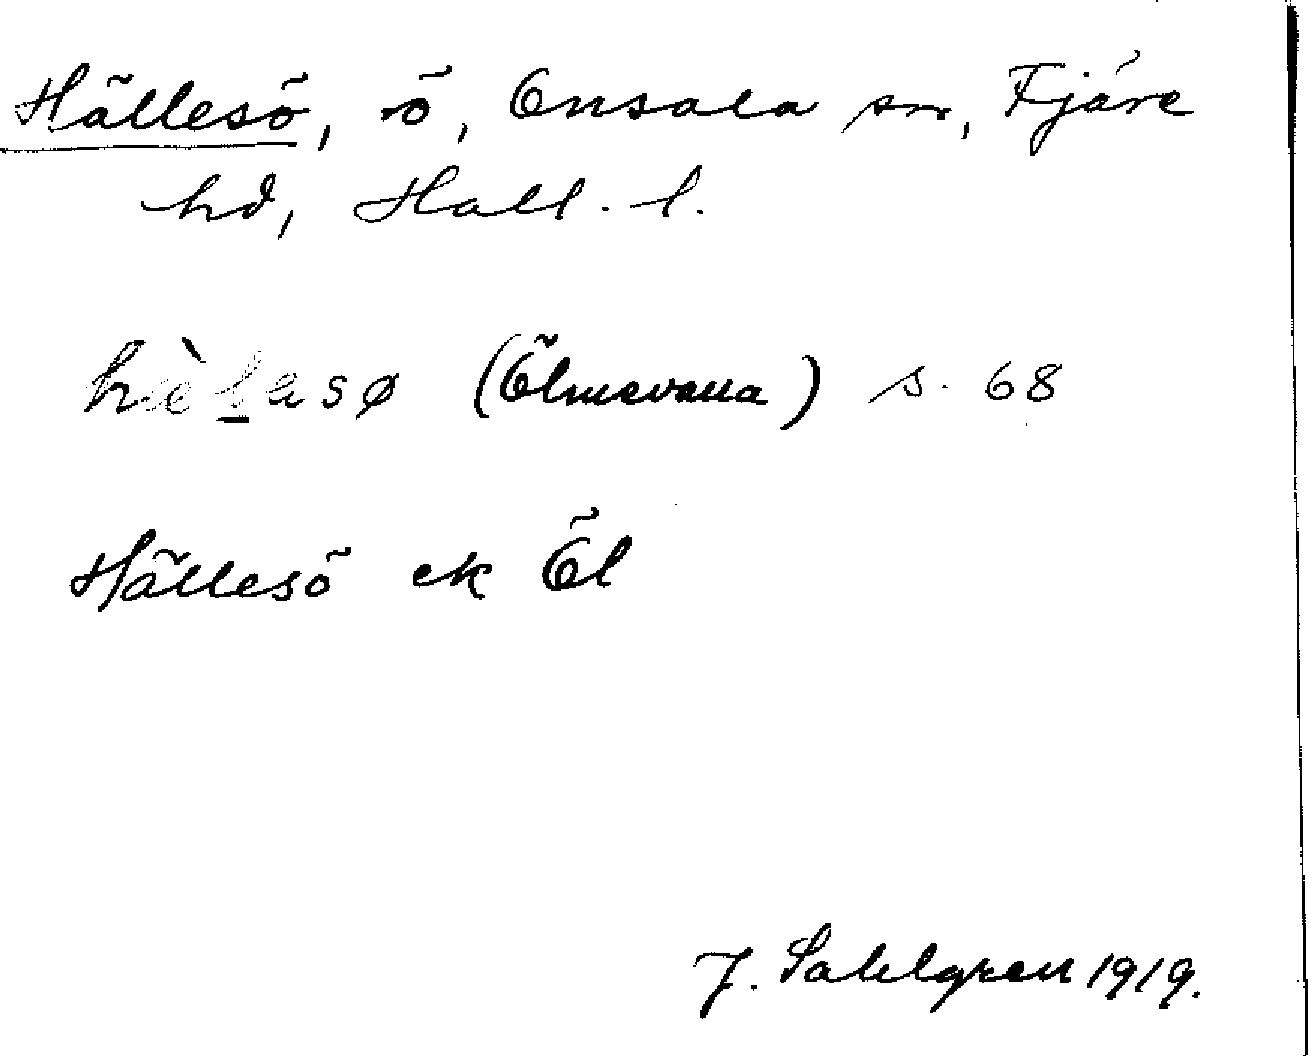 Hällesö, ö, Onsala sn, Fjäre
hd, Hall. l.
hèl̠asø (Ölmevalla) s. 68
Hällesö ek Öl
J. Sahlgren 1919.